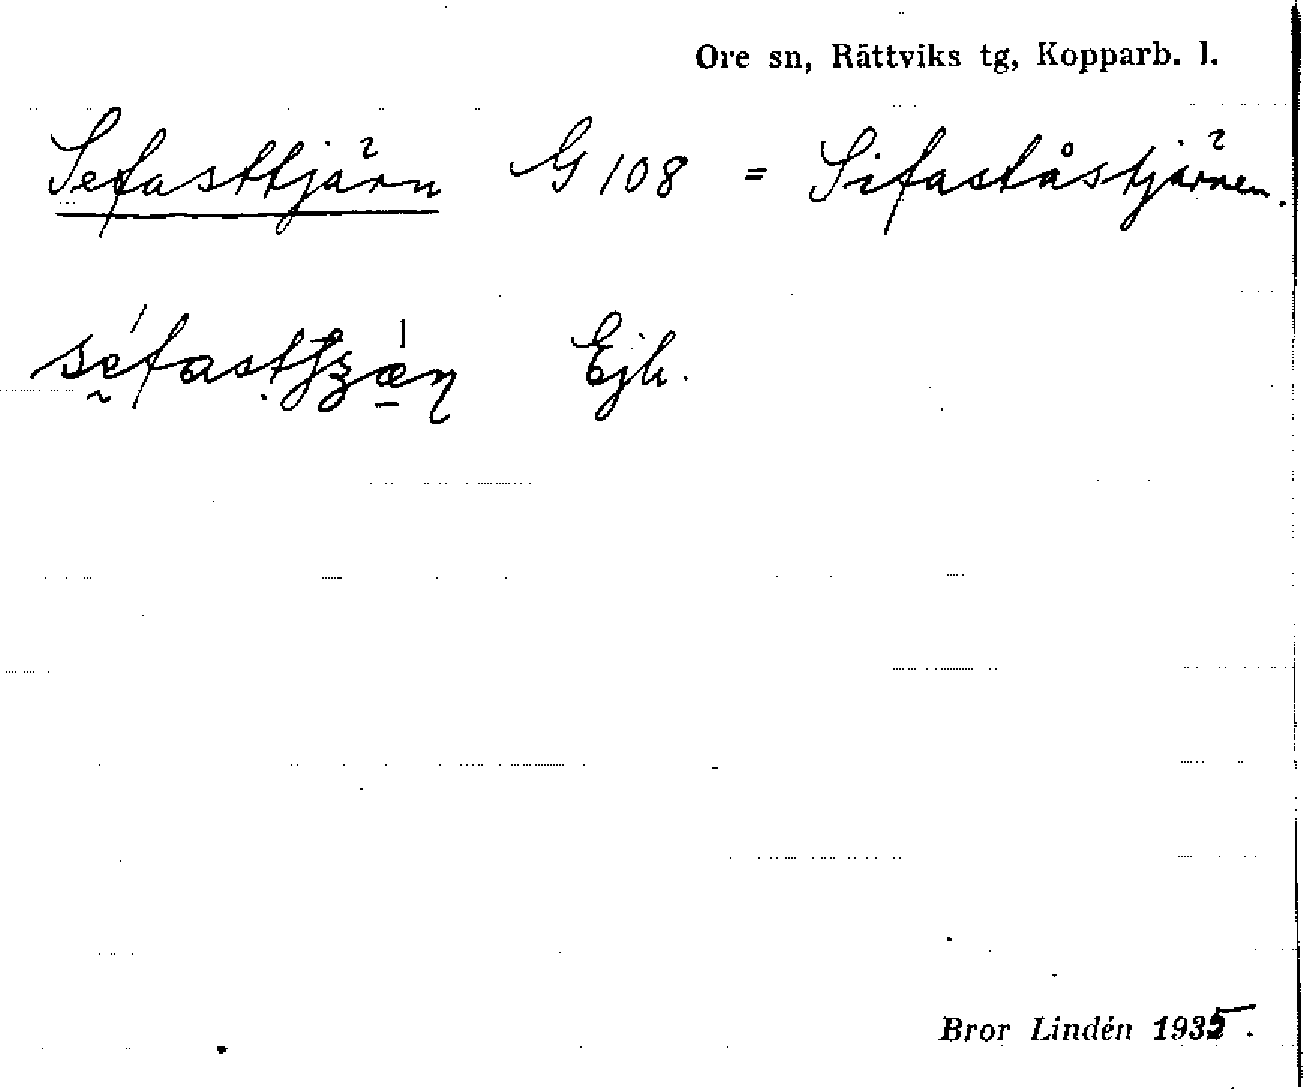 Ore sn, Rättviks tg, Kopparb. l.
Sefasttjärn G 108 = Sifaståstjärnen.
Ejk.
Bror Lindén 1935.